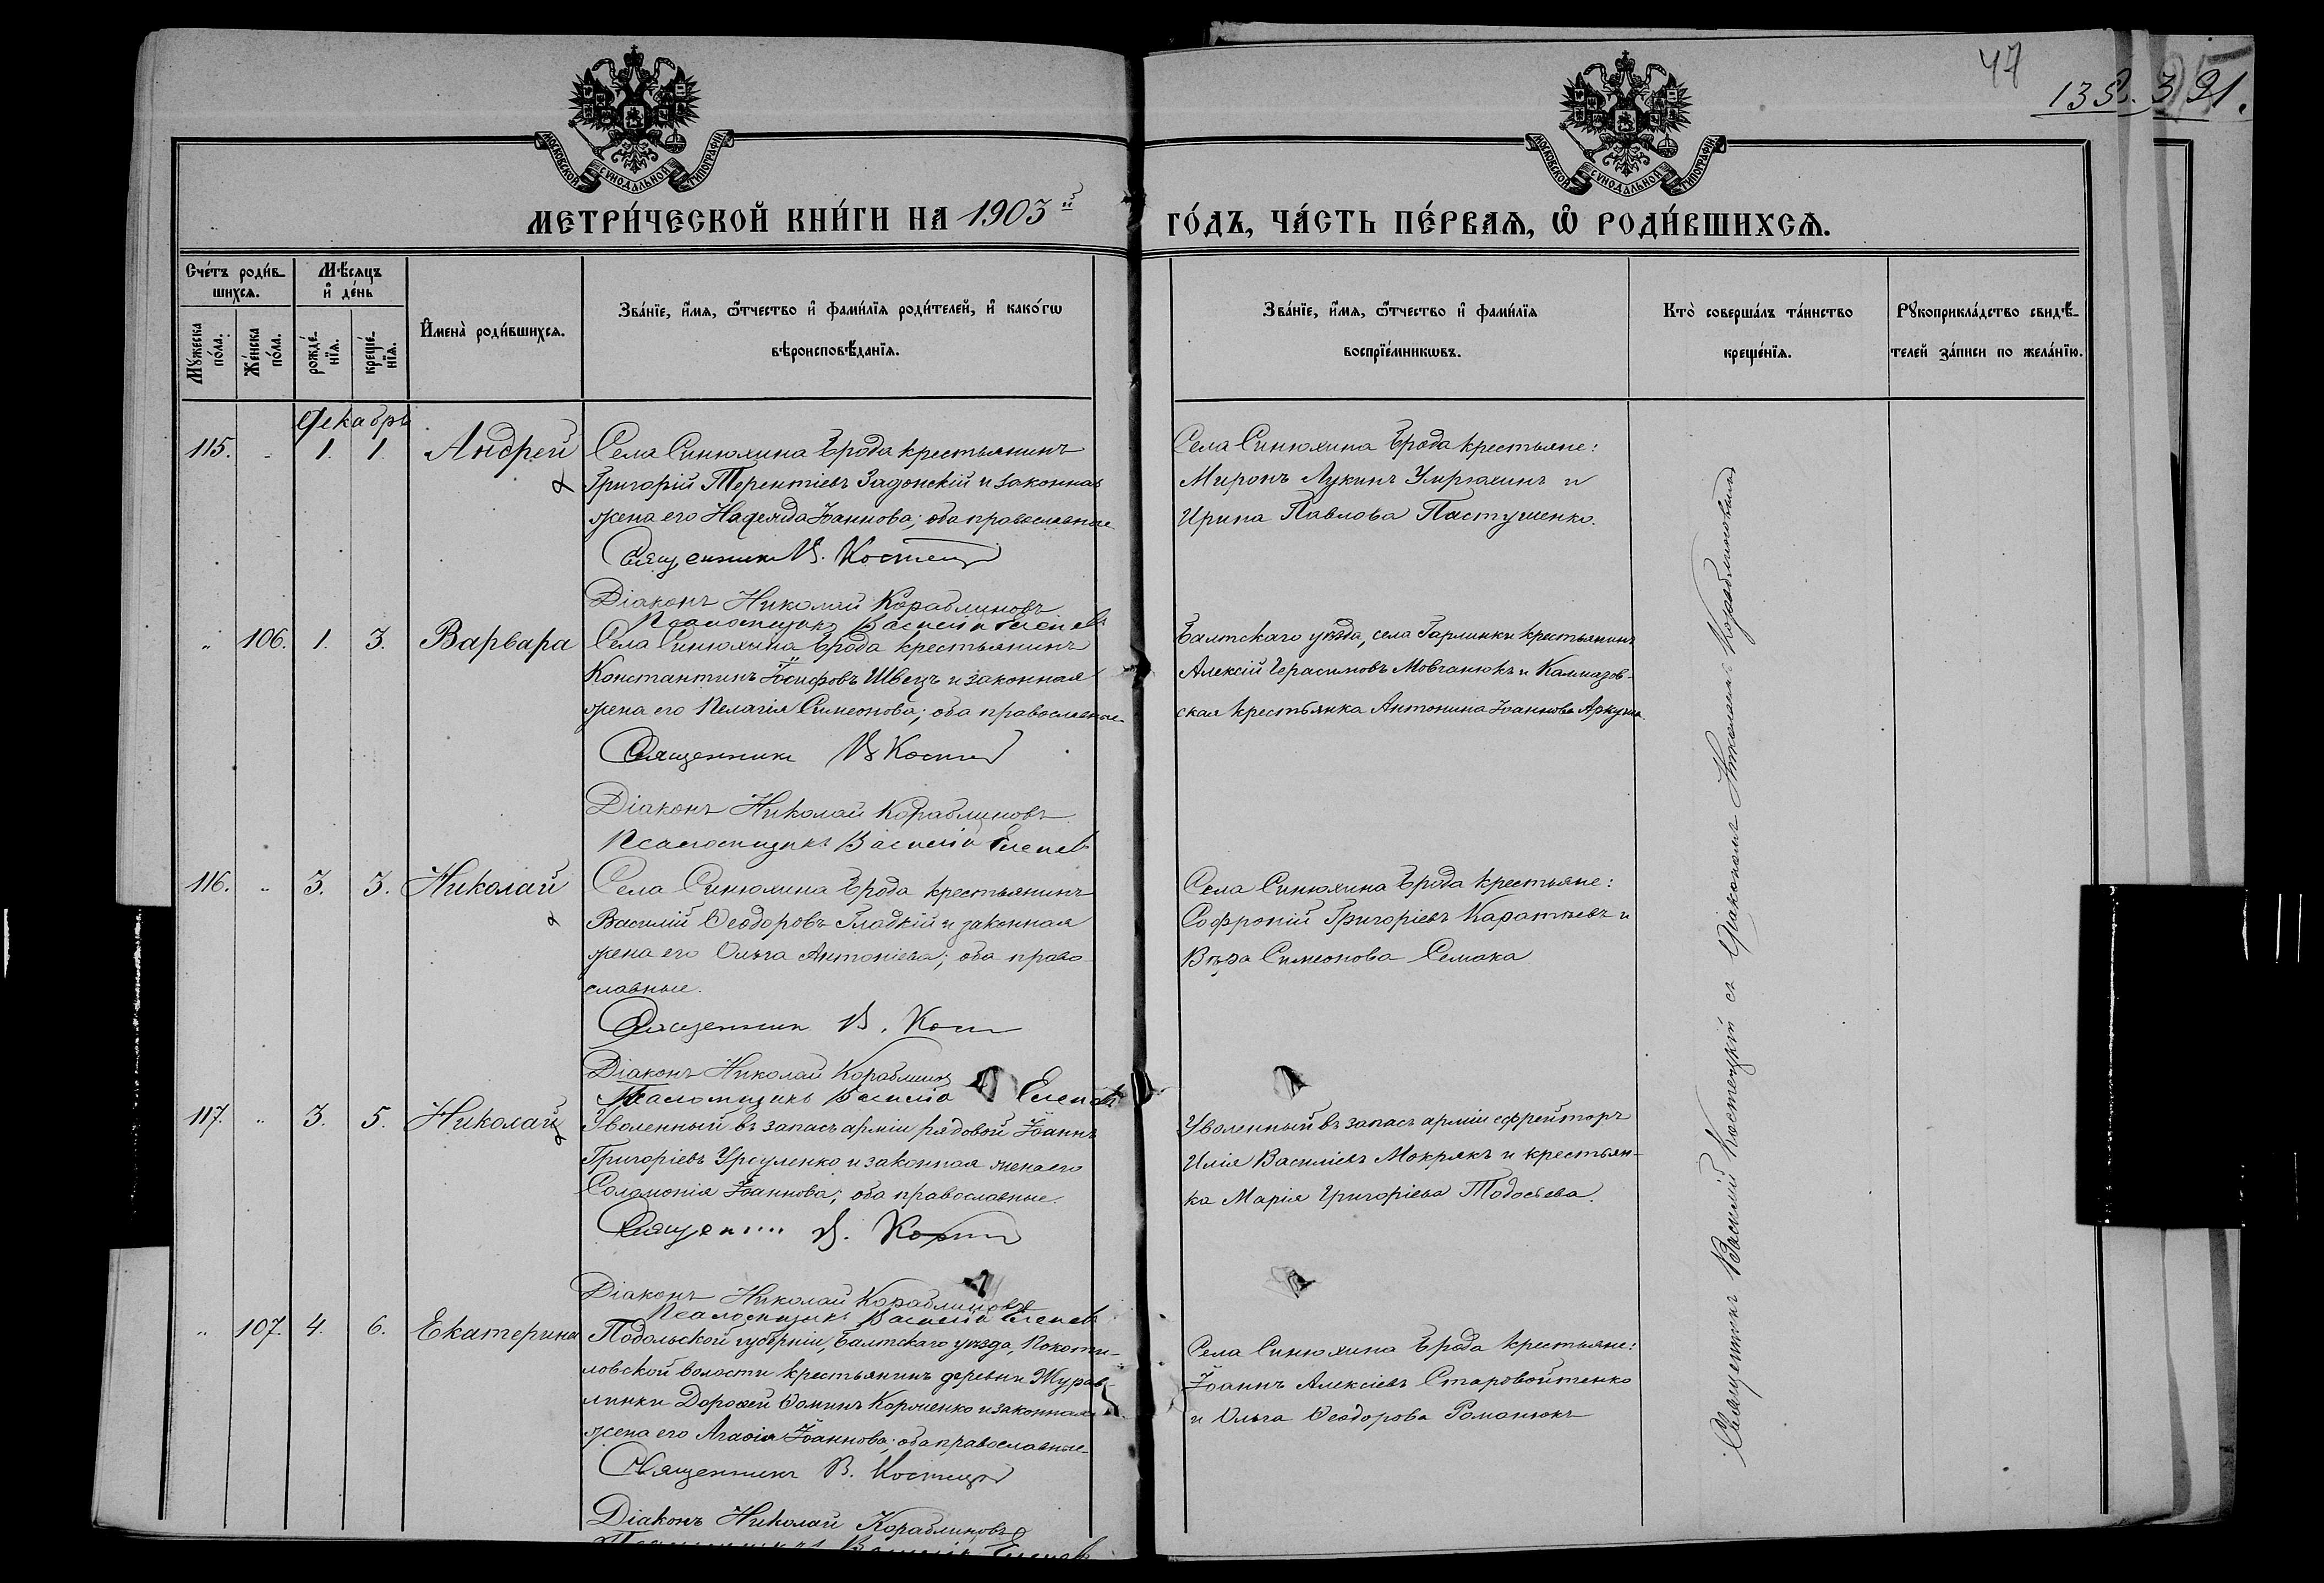 47
132. 321.
МОСКОВСКОЙ СѴНОДАЛЬНОЙ ТИПОГРАФІИ
МОСКОВСКОЙ СѴНОДАЛЬНОЙ ТИПОГРАФІИ
МЕТРИ́ЧЕСКОЙ КНИ́ГИ НА 1903й
ГО́ДЪ, ЧА́СТЬ ПЕ́РВАѦ, Ѡ҆ РОДИ́ВШИХСѦ.
Сче́тъ роди́в-
шихсѧ.
Мꙋ́жеска по́ла.
Же́нска по́ла.
Мѣ́сѧцъ
и҆ де́нь
рожде́-
нїѧ.
креще́-
нїѧ.
И҆мена̀ роди́вшихсѧ.
Зва́нїе, и҆́мѧ, ѻ҆́тчество и҆ фами́лїѧ роди́телей, и҆ како́гѡ
вѣроисповѣ́данїѧ.
Зва́нїе, и҆́мѧ, ѻ҆́тчество и҆ фами́лїѧ
воспрїе́мникѡвъ.
Кто̀ соверша́лъ та́инство
креще́нїѧ.
Рꙋкоприкла́дство свидѣ́-
телей за́писи по жела́нїю.
Декабрь
115. „ 1. 1. Андрей
Села Синюхина Брода крестьянинъ
Григорій Терентіевъ Задонскій и законная
жена его Надежда Іоаннова; оба православные
Священникъ В. Костец
Діаконъ Николай Кораблиновъ
Псаломщикъ Василій
Села Синюхина Брода крестьяне:
Миронъ Лукинъ и
Ирина Павлова Пастушенко.
„ 106. 1. 3. Варвара
Села Синюхина Брода крестьянинъ
Константинъ Іосифовъ Швецъ и законная
жена его Пелагія Симеонова; оба православные
Священникъ В Кост
Діаконъ Николай Кораблиновъ
Псаломщикъ Василій
Балтскаго уѣзда, села крестьянинъ
Алексій Герасимовъ Мовчанюкъ и Калмазов-
ская крестьянка Антонина Іоаннова
116. „ 3. 3. Николай
Села Синюхина Брода крестьянинъ
Василій Ѳеодоровъ Гладкій и законная
жена его Ольга Антоніева; оба право-
славные.
Священник В. Кост
Діаконъ Николай Кораблинов
Псаломщикъ Василій
Села Синюхина Брода крестьяне:
Софроній Григоріевъ Каратѣевъ и
Вѣра Симеонова Семака
117. „ 3. 5. Николай
Уволенный въ запасъ арміи рядовой Іоаннъ
Григоріевъ Урсуленко и законная жена его
Соломонія Іоаннова; оба православные.
Священ В. Кост
Діаконъ Николай Кораблиновъ
Псаломщикъ Василій
Уволенный въ запасъ арміи ефрейторъ
Илія Василіевъ Мокрякъ и крестьян-
ка Марія Григоріева Тодосьева.
„ 107. 4. 6. Екатерина
Подольской губерніи, Балтскаго уѣзда, Покоти-
ловской волости крестьянинъ деревни Журав-
линки Дороѳей Ѳоминъ Корченко и законная
жена его Агаѳія Іоаннова; оба православные.
Священникъ В. Костец
Діаконъ Николай Кораблиновъ
Псаломщикъ Василій
Села Синюхина Брода крестьяне:
Іоаннъ Алексіевъ Старовойтенко
и Ольга Ѳеодорова Романюкъ
Священникъ Василій Костецкій съ діакономъ Николаемъ Кораблиновымъ